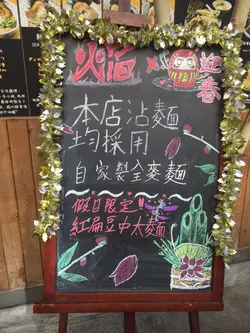 火宿 × 福 迎春
本店沾麵
均採用
自家製全麥麵
假日限定!!
紅扁豆中太麵